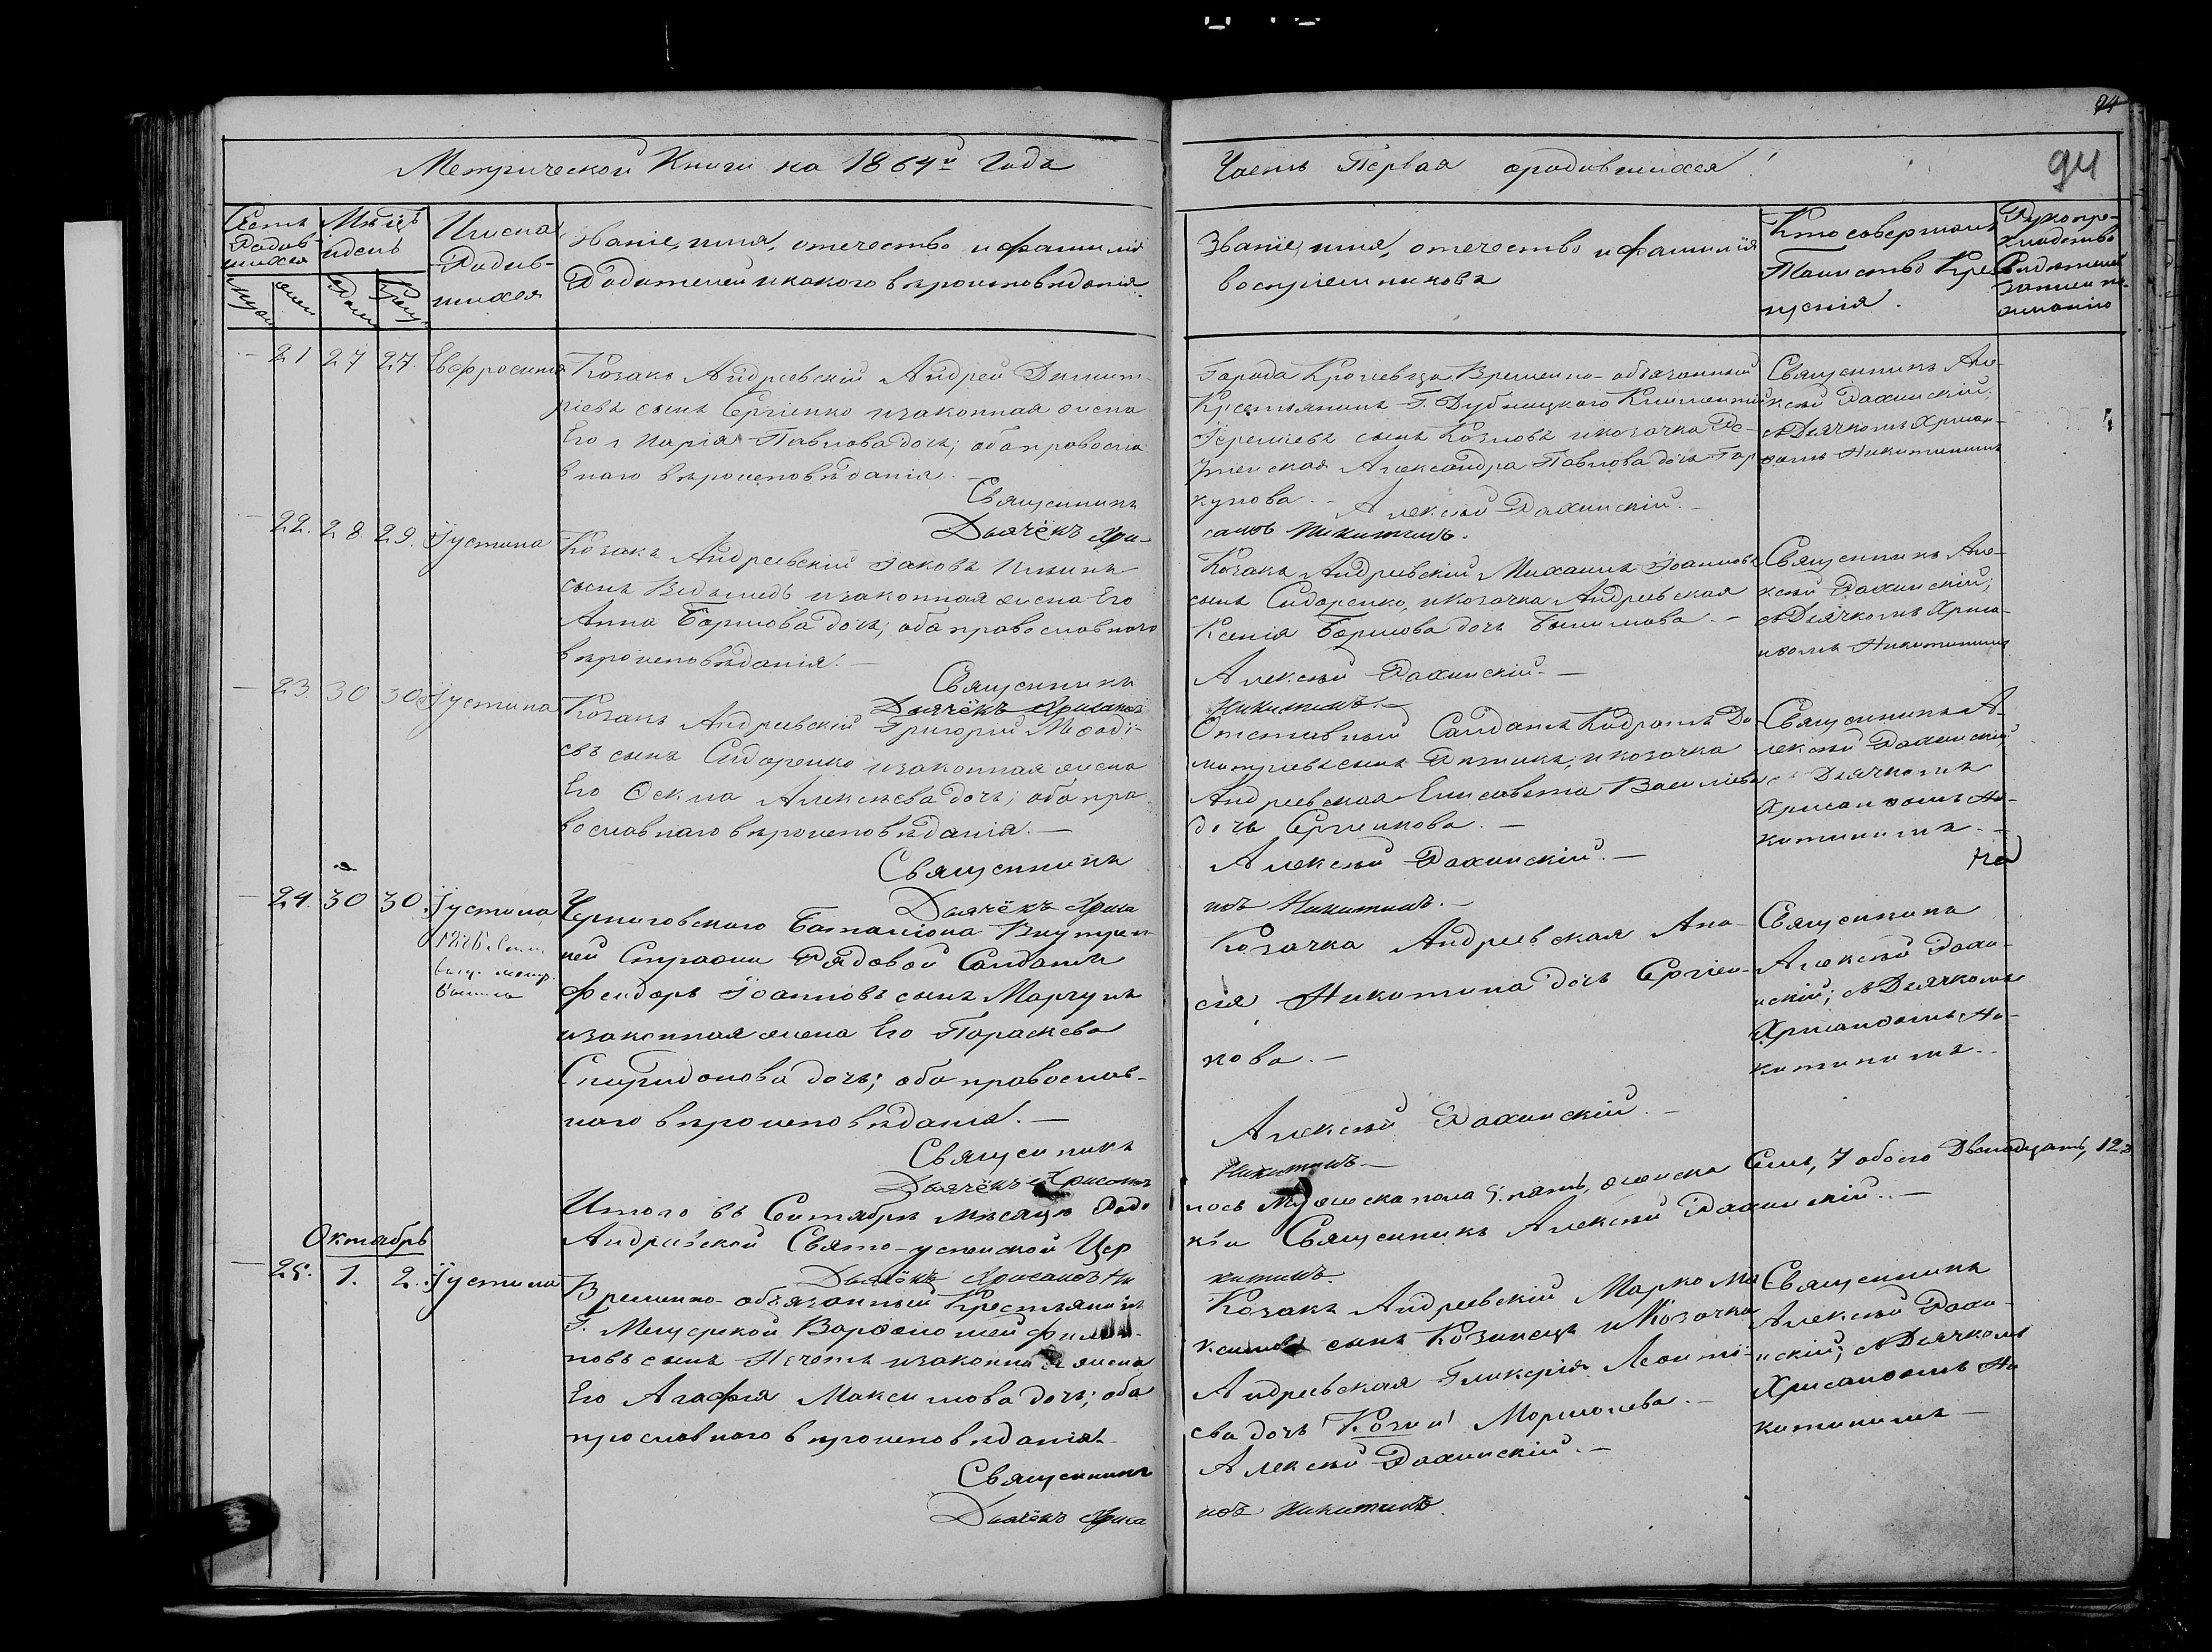 94
94
Метрической Книги на 1864й Года
Часть Первая о родившихся
Счетъ Родив-
шихся
Мѣсцъ
и день
Имена
Родив-
шихся
Званіе, имя, отечество и фамилія
Родителей и какого вѣроисповѣданія.
Званіе, имя, отечество и фамилія
воспріемниковъ
Кто совершалъ
Таинство Кре
щенія.
Рукопри-
кладство
Свидѣтелей
записи по
желанію
21 27 27. Евфросинія
Козакъ Андреевскій Андрей Димит-
ріевъ сынъ Сергіенко и законная жена
Его Марія Павлова дочь; оба правосла
внаго вѣроисповѣданія.
Священникъ
Дьячёкъ Хри-
Города Кролевца Временно-обязанный
Крестьянинъ Г. Дубницкого Климентій
Іереміевъ сынъ Козловъ и козачка
Александра Павлова дочь
кунова.
Алексѣй Рахинскій.
санѳъ Никитинъ.
Священникъ Але-
ксѣй Рахинскій;
съ Дьячкомъ Хрисан-
ѳомъ Никитинымъ
22. 28 29. Іустина
Козакъ Андреевскій Іаковъ Ильинъ
сынъ и законная жена Его
Анна дочь; оба православнаго
вѣроисповѣданія.
Священникъ
Дьячёкъ Хрисанѳъ
Козакъ Андреевскій Михаилъ Іоанновъ
сынъ Сидоренко, и козачка Андреевская
Ксенія дочь
Алексѣй Рахинскій.
Никитинъ.
Священникъ Але-
ксѣй Рахинскій;
съ Дьячкомъ Хриса-
нѳомъ Никитинымъ
23 30 30 Іустина
Козакъ Андреевскій Григорій Меѳоді-
евъ сынъ Сидоренко и законная жена
Его Ѳекла Алексѣева дочь; оба пра
вославнаго вѣроисповѣданія.
Священникъ
Дьячёкъ Хриса
Отставный Солдатъ Кодратъ Ди
митріевъ сынъ и козачка
Андреевская Елисавета Васильева
дочь Сергіенкова.
Алексѣй Рахинскій.
нѳъ Никитинъ.
Священникъ А-
лексѣй Рахинскій
съ Дьячкомъ
Хрисанѳомъ Ни-
китинымъ.
24. 30 30. Іустина
Черниговскаго Баталіона Внутрен-
ней Стражи Рядовой Солдатъ
Феидоръ Іоанновъ сынъ Марчукъ
и законная жена Его Параскева
Спиридонова дочь; оба православ-
наго вѣроисповѣданія.
Священникъ
Дьячёкъ Хрисанѳъ
Козачка Андреевская Ана-
сія Никитина дочь Сергіен-
кова.
Алексѣй Рахинскій.
Никитинъ
Священникъ
Алексѣй Рахи-
нскій; съ Дьячкомъ
Хрисанѳомъ Ни-
китинымъ.
Итого въ Сентябрѣ мѣсяцѣ Роди
лось Мужеска пола 5. пять, женска Семь, 7 обоего Двенадцать, 12.
Андреевской Свято-успенской Цер
кви Священникъ Алексѣй Рахинскій.
Дьячёкъ Хрисанѳъ Ни
китинъ.
Октябрь
25. 1. 2. Іустина
Временно-обязанный Крестьянинъ
Г. Мещерской Варѳоломей Филип-
повъ сынъ и законная жена
Его Агафія Максимова дочь; оба
прославнаго вѣроисповѣданія.
Священникъ
Дьячёкъ Хриса
Козакъ Андреевскій Марко Ма
ксимовъ сынъ Козинецъ и Козачка
Андреевская Гликерія Леонті-
ева дочь
Алексѣй Рахинскій.
нѳъ Никитинъ
Священникъ
Алексѣй Рахи-
нскій; съ Дьячкомъ
Хрисанѳомъ Ни
китинымъ